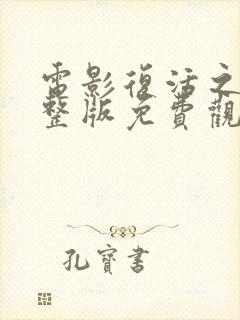 電影復活之
整版免費觀
孔寶書